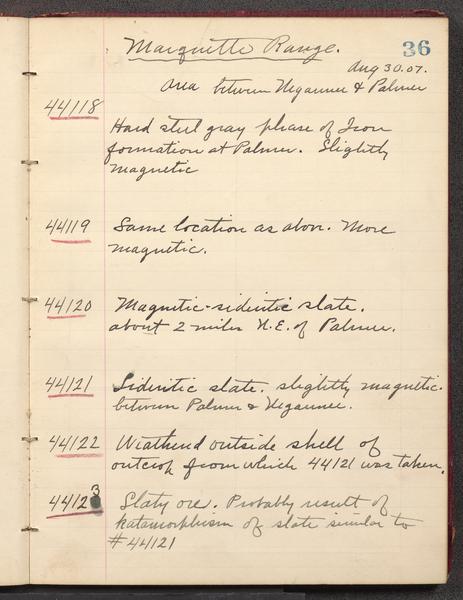 Marquette Range.
36
Aug 30.07.
Area between Negaunee & Palmer
44118
Hard steel gray phase of Iron
formation at Palmer. Slightly
magnetic
44119 Same location as above. More
magnetic.
44120 Magnetic-sideritic slate.
about 2 miles N.E. of Palmer.
44121 Sideritic slate. slightly magnetic.
between Palmer & Negaunee.
44122 Weathered outside shell of
outcrop from which 44121 was taken.
44123 Slaty ore. Probably result of
katamorphism of slate similar to
# 44121